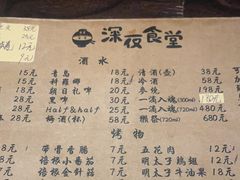 深夜食堂
酒水
15元 青岛 18元 清酒(壶) 38元
15元 科罗娜 18元 冷酒 58元
18元 朝日札啤 20元 参烧 198元
28元 黑啤 30元 一滴入魂(300ml) 180元
28元 Half&half 25元 一滴入魂(720ml) 480元
28元 梅酒(杯) 30元 獭祭(720ml) 680元
烤物
带骨香肠 18元 五花肉 12元
培根小番茄 18元 明太子鸡翅 12元
培根金针菇 18元 明太子牛油果 18元